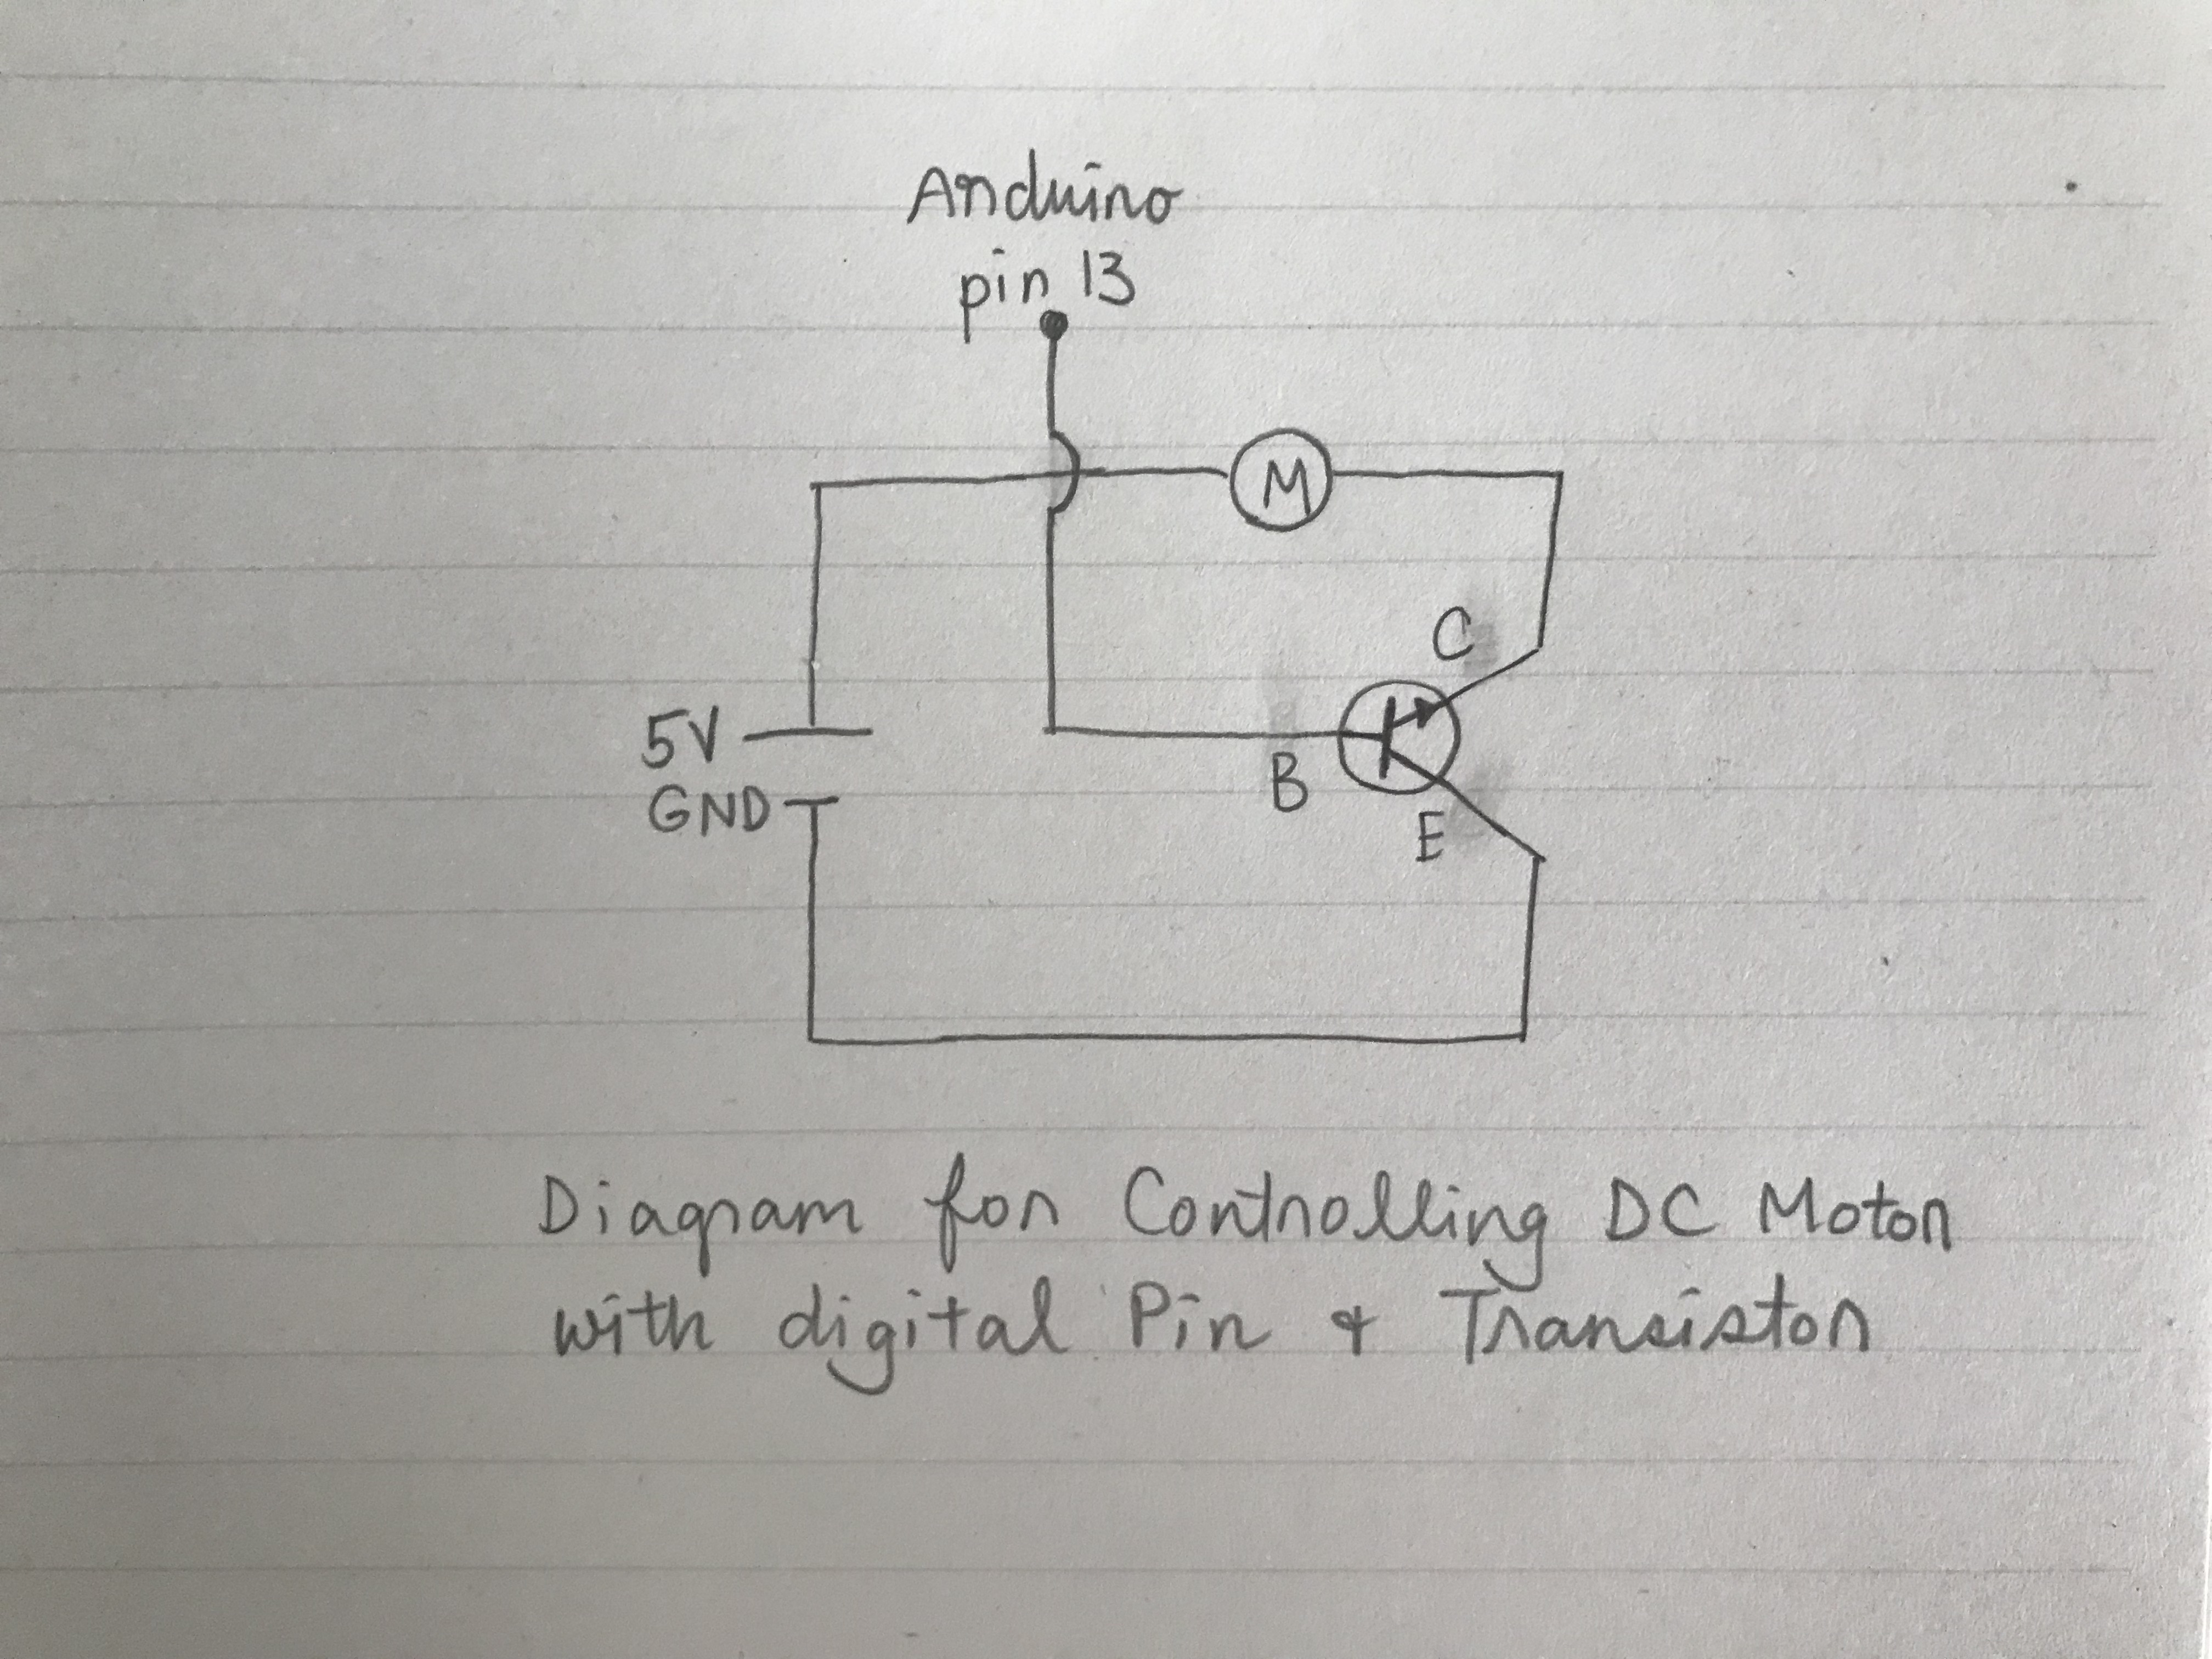 Arduino
pin 13
M
5V
GND
B
C
E
Diagram for Controlling DC Motor
with digital Pin & Transistor